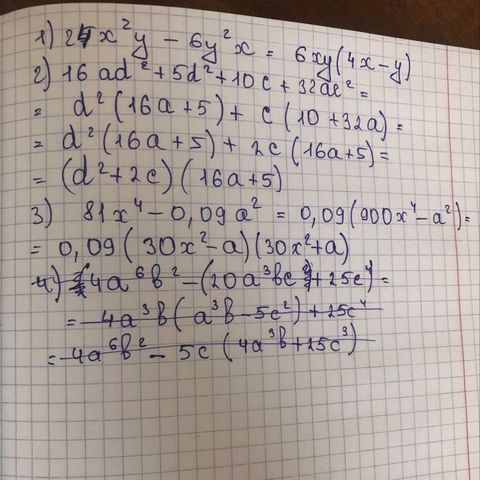 1) 24x²y - 6y²x = 6xy(4x-y)
2) 16ad² + 5d² + 10c + 32ac² =
= d²(16a+5) + c(10+32a) =
= d²(16a+5) + 2c(16a+5) =
= (d²+2c)(16a+5)
3) 81x⁴ - 0,09a² = 0,09(900x⁴-a²) =
= 0,09(30x²-a)(30x²+a)
4) 4a⁶b² - (20a³bc² + 25c⁴ =
= 4a³b(a³b-5c²) + 25c⁴
= 4a⁶b² - 5c(4a³b+25c³)